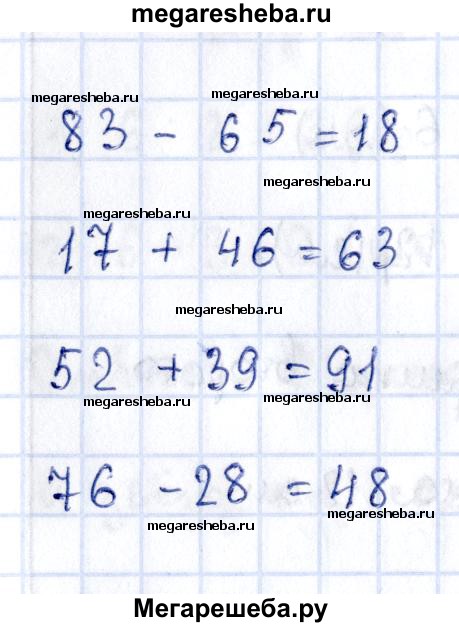 megaresheba.ru
megaresheba.ru megaresheba.ru
83 - 65 = 18
megaresheba.ru
megaresheba.ru
17 + 46 = 63
megaresheba.ru
52 + 39 = 91
megaresheba.ru megaresheba.ru
76 - 28 = 48
megaresheba.ru megaresheba.ru
Мегарешеба.ру